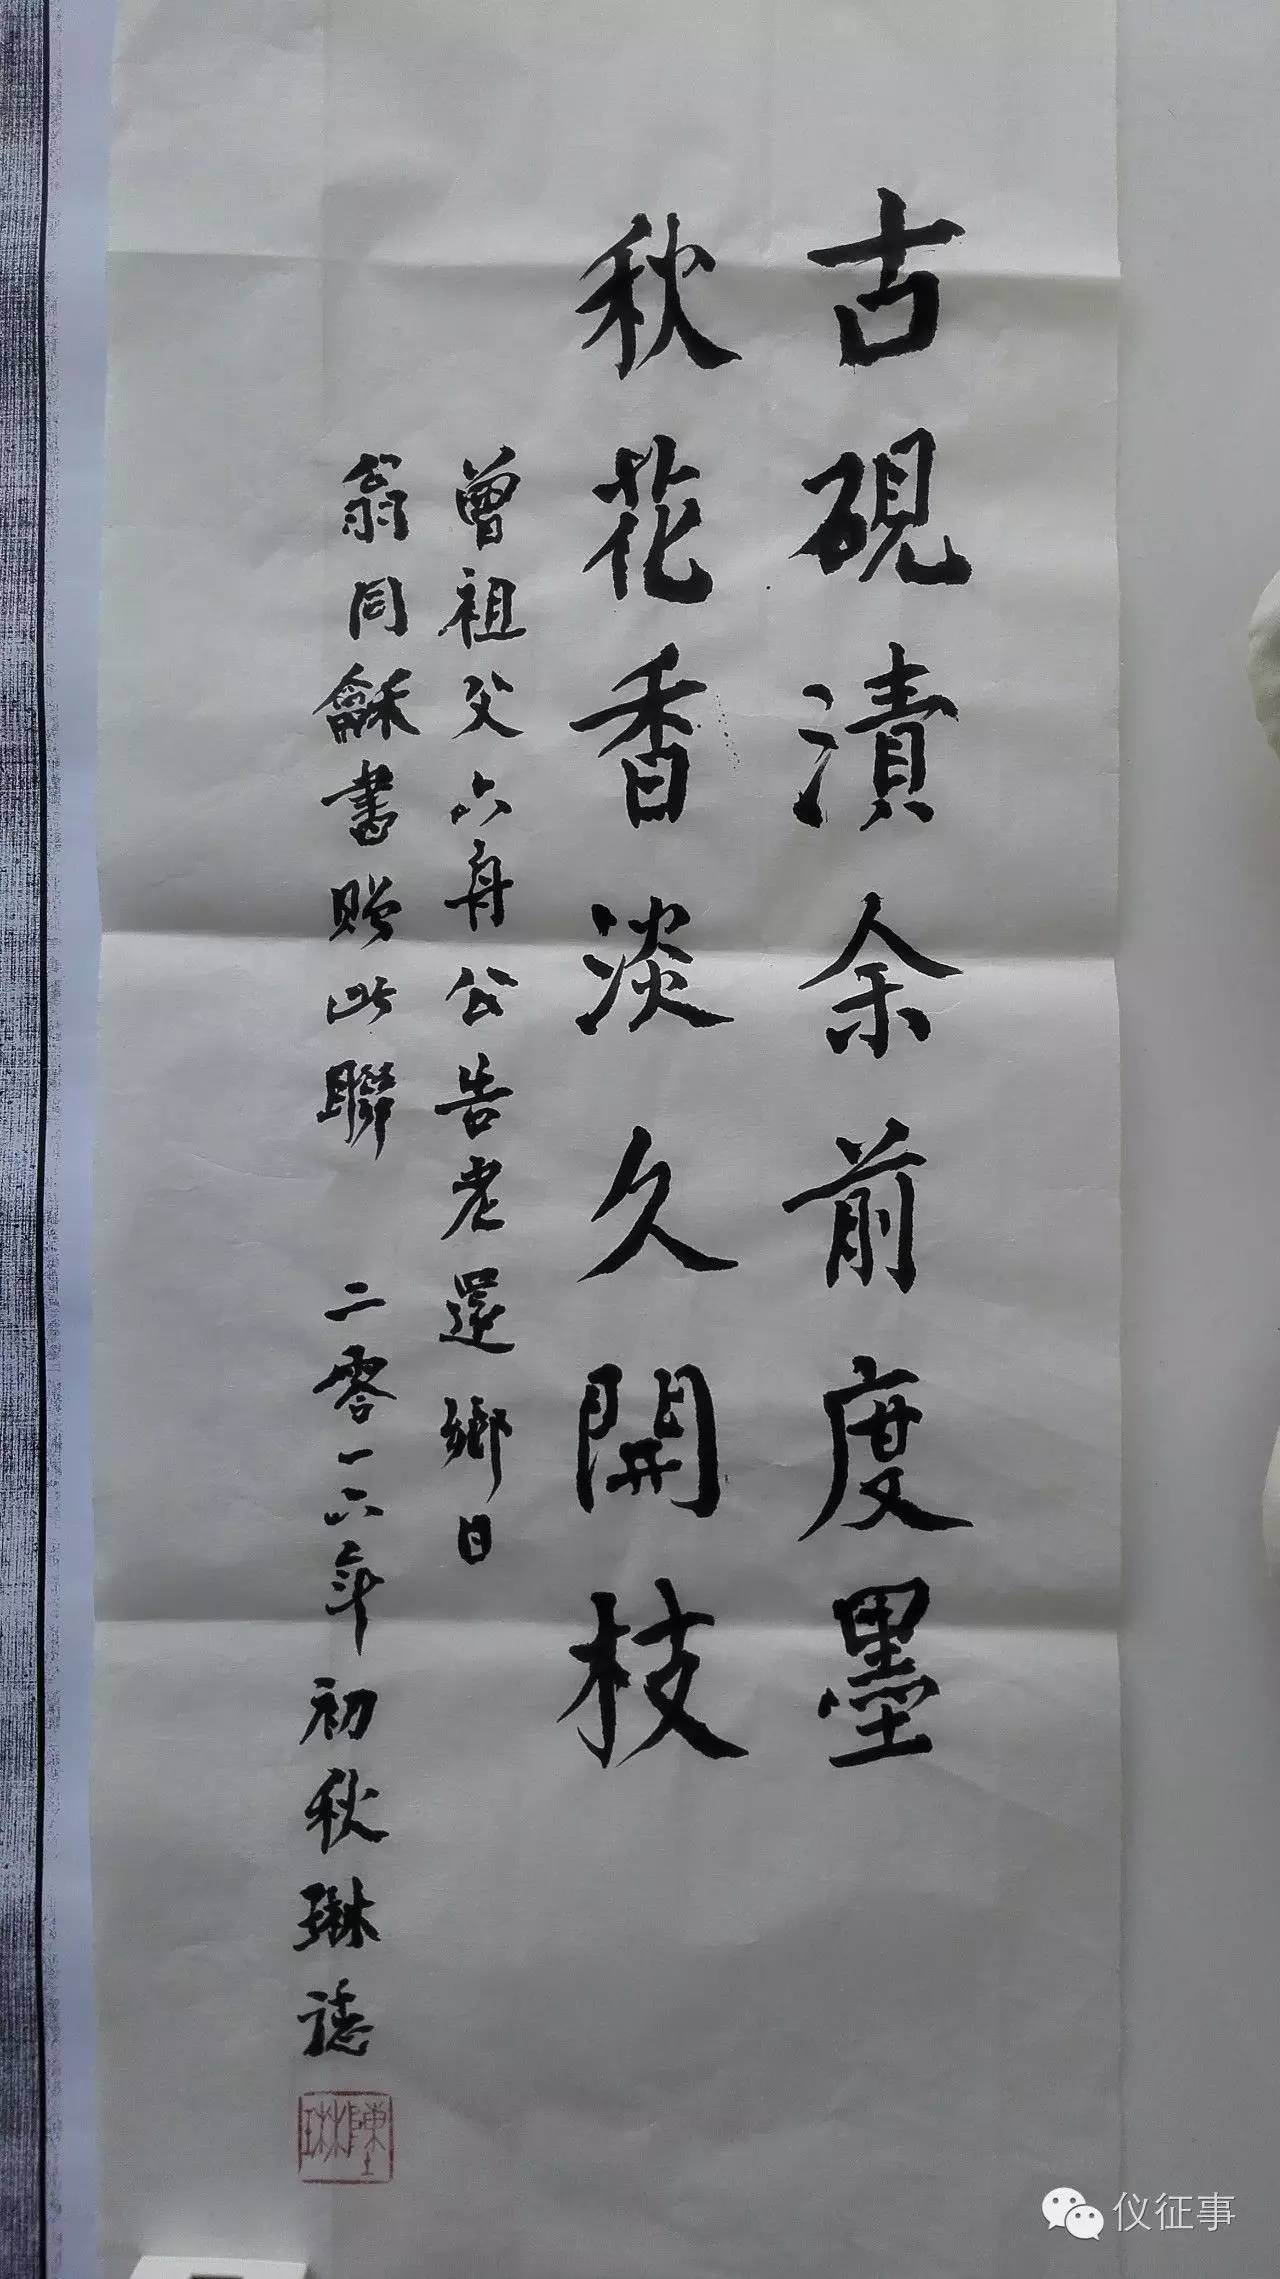 古硯漬余前度墨
秋花香淡久開枝
曾祖父六舟公告老還鄉日
翁同龢書贈此聯 二零一六年初秋琳誌
陳琳
仪征事